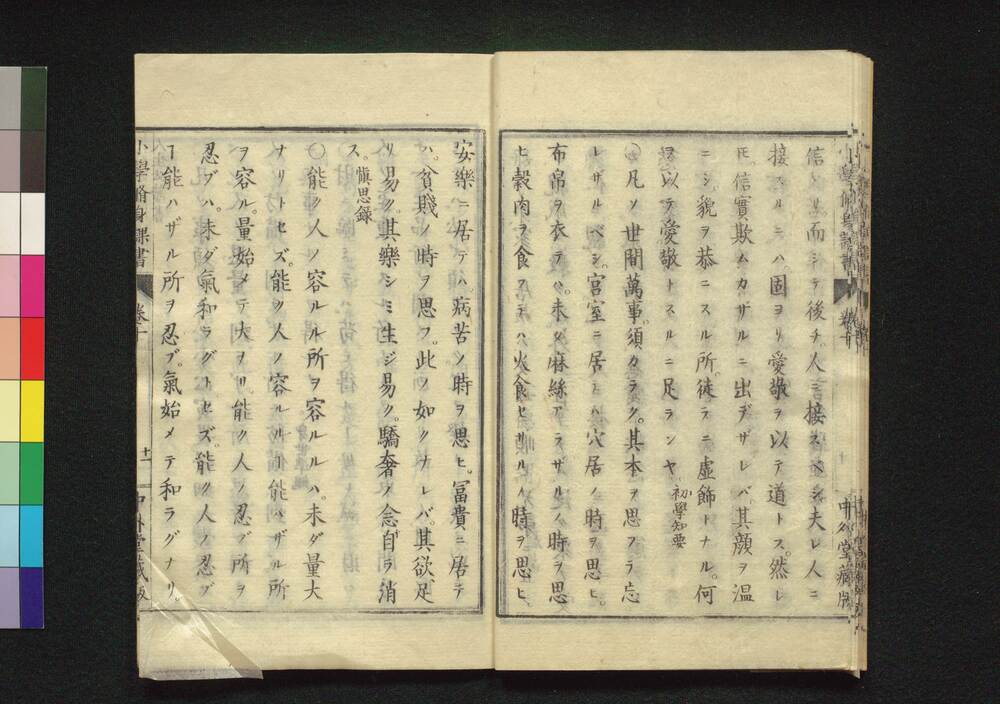 信アリ而シテ後チ人ニ接スベシ夫レ人ニ
接スルニハ固ヨリ愛敬ヲ以テ道トス。然レ
𪜈信實欺ムカザルニ出デザレバ其顔ヲ温
ニシ貌ヲ恭ニスル所徒ラニ虛飾トナル。何
以テ愛敬トスルニ足ランヤ 初學知要
〇凡ソ世間萬事須カラク其本ヲ思フテ忘
レザルベシ。宮室ニ居テハ穴居ノ時ヲ思ヒ。
布帛ヲ衣テハ未ダ麻絲アラザルノ時ヲ思
ヒ穀肉ヲ食フテハ火食セザルノ時ヲ思ヒ
安樂ニ居テハ病苦ノ時ヲ思ヒ。富貴ニ居テ
ハ貧賤ノ時ヲ思フ。此ノ如クナレバ其欲足
リ易ク其樂シミ生ジ易ク。驕奢ノ念自ラ消
ス。愼思録
〇能ク人ノ容ルル所ヲ容ルルハ未ダ量大
ナリトセズ。能ク人ノ容ルル𪜀能ハザル所
ヲ容ル。量始メテ大ヲリ。能ク人ノ忍ブ所ヲ
忍ブハ未ダ氣和ラグトセズ。能ク人ノ忍ブ
ヿ能ハザル所ヲ忍ブ。氣始メテ和ラグナリ。
小學脩身課書
十一
中外堂藏版